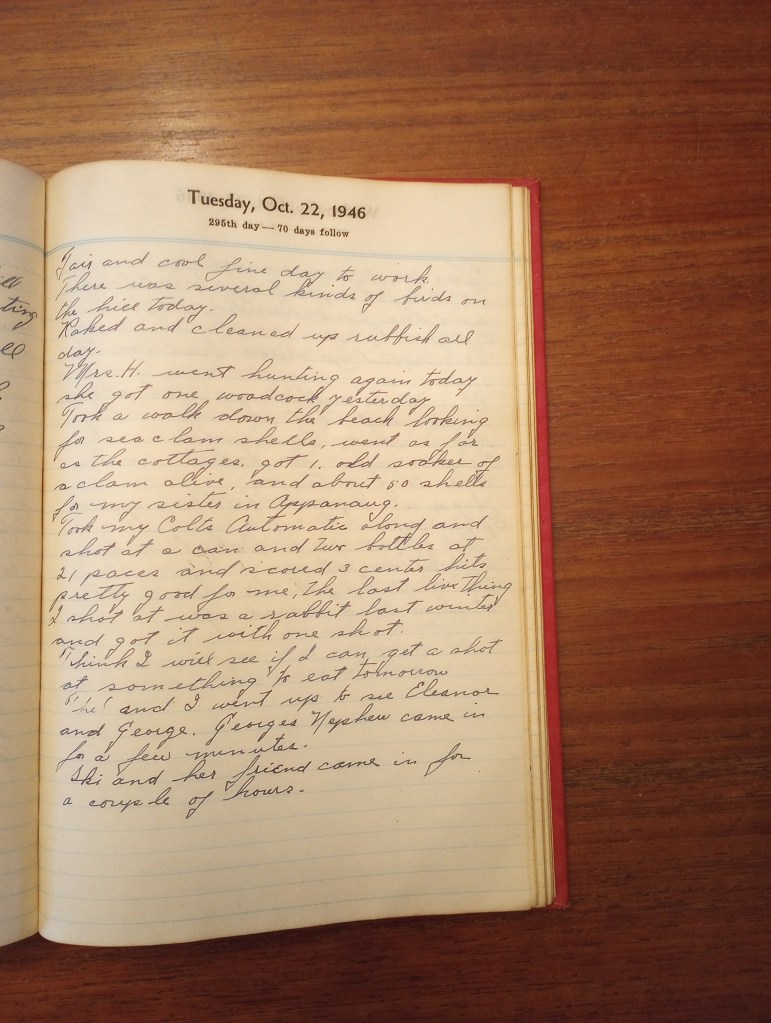 ell
ting
ell
Tuesday, Oct. 22, 1946
295th day — 70 days follow
Fair and cool fine day to work.
There was several kinds of birds on
the hill today.
Raked and cleaned up rubbish all
day.
Mrs. H. went hunting again today
she got one woodcock yesterday
Took a walk down the beach looking
for sea clam shells, went as far
as the cottages. got 1. old soaker of
a clam alive, and about 50 shells
for my sister in Appanaug.
Took my Colts Automatic along and
shot at a can and two bottles at
21 paces and scored 3 center hits
pretty good for me, the last live thing
I shot at was a rabbit last winter
and got it with one shot.
Think I will see if I can get a shot
at something to eat tomorrow
"he" and I went up to see Eleanor
and George. Georges Nephew came in
for a few minutes.
Ski and her friend came in for
a couple of hours.